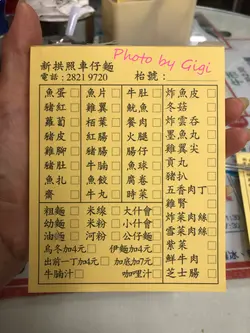 Photo by Gigi
新拱照車仔麵
電話：2821 9720 枱號：
魚蛋 魚片 牛肚 炸魚皮
豬紅 雞翼 魷魚 冬菇
蘿蔔 栢葉 餐肉 炸雲吞
豬皮 紅腸 火腿 墨魚丸
雞腳 豬腸 腸仔 雞尖
豬肚 牛腩 魚球 貢丸
魚扎 魚餃 腐卷 豬扒
齋 牛丸 時菜 五香肉丁
雞腎
粗麵 米線 大什會 炸菜肉絲
幼麵 米粉 小什會 雪菜肉絲
油麵 河粉 公仔麵 紫菜
烏冬加4元 伊麵加4元 鮮牛肉
出前一丁加4元 加底加7元 芝士腸
牛腩汁 咖哩汁